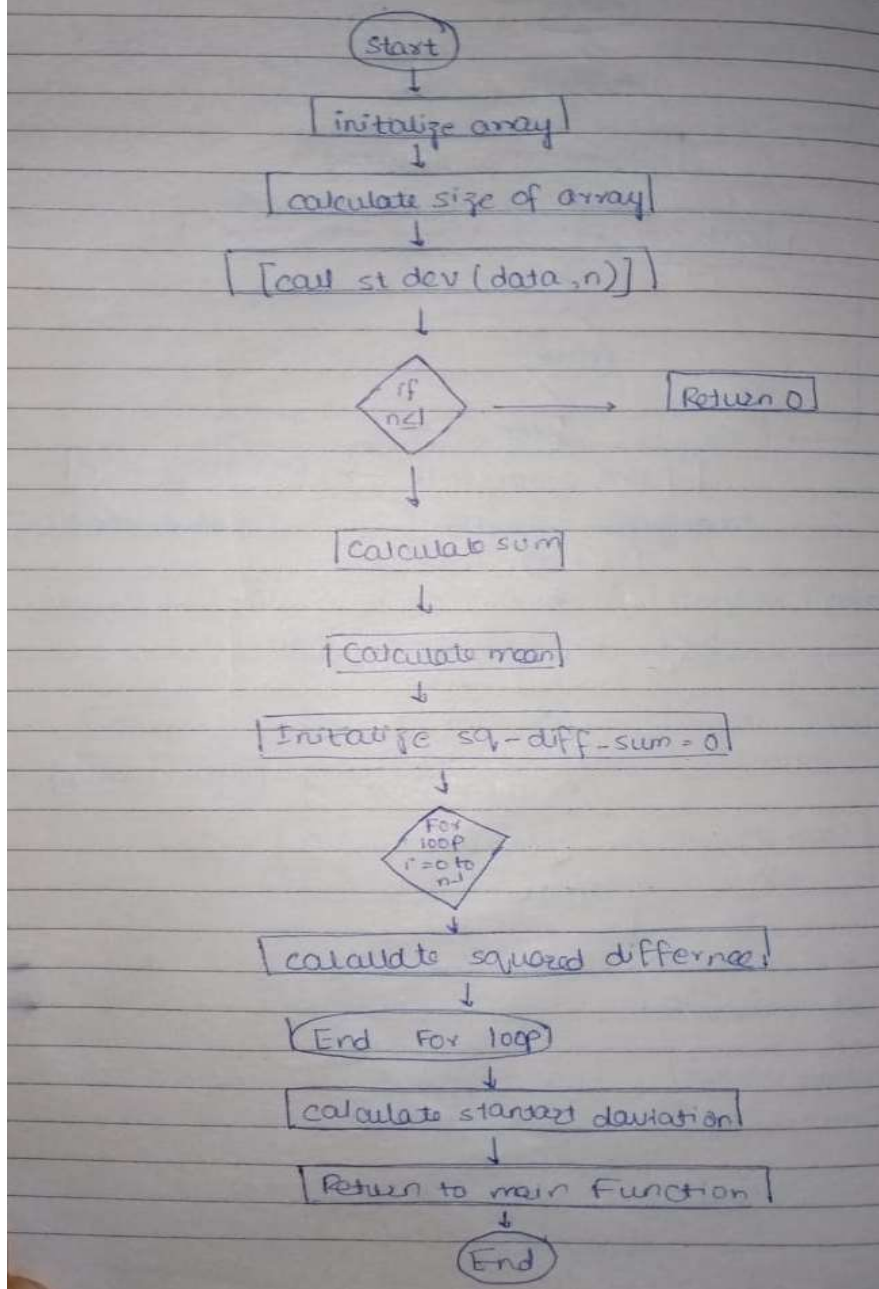 Start
initalize array
calculate size of array
[call st dev (data,n)]
if
n≤1
Return 0
Calculate sum
Calculate mean
Initalize sq-diff-sum = 0
For
loop
i=0 to
n-1
calculate squared differnce
End For loop
calculate standart daviation
Return to main Function
End